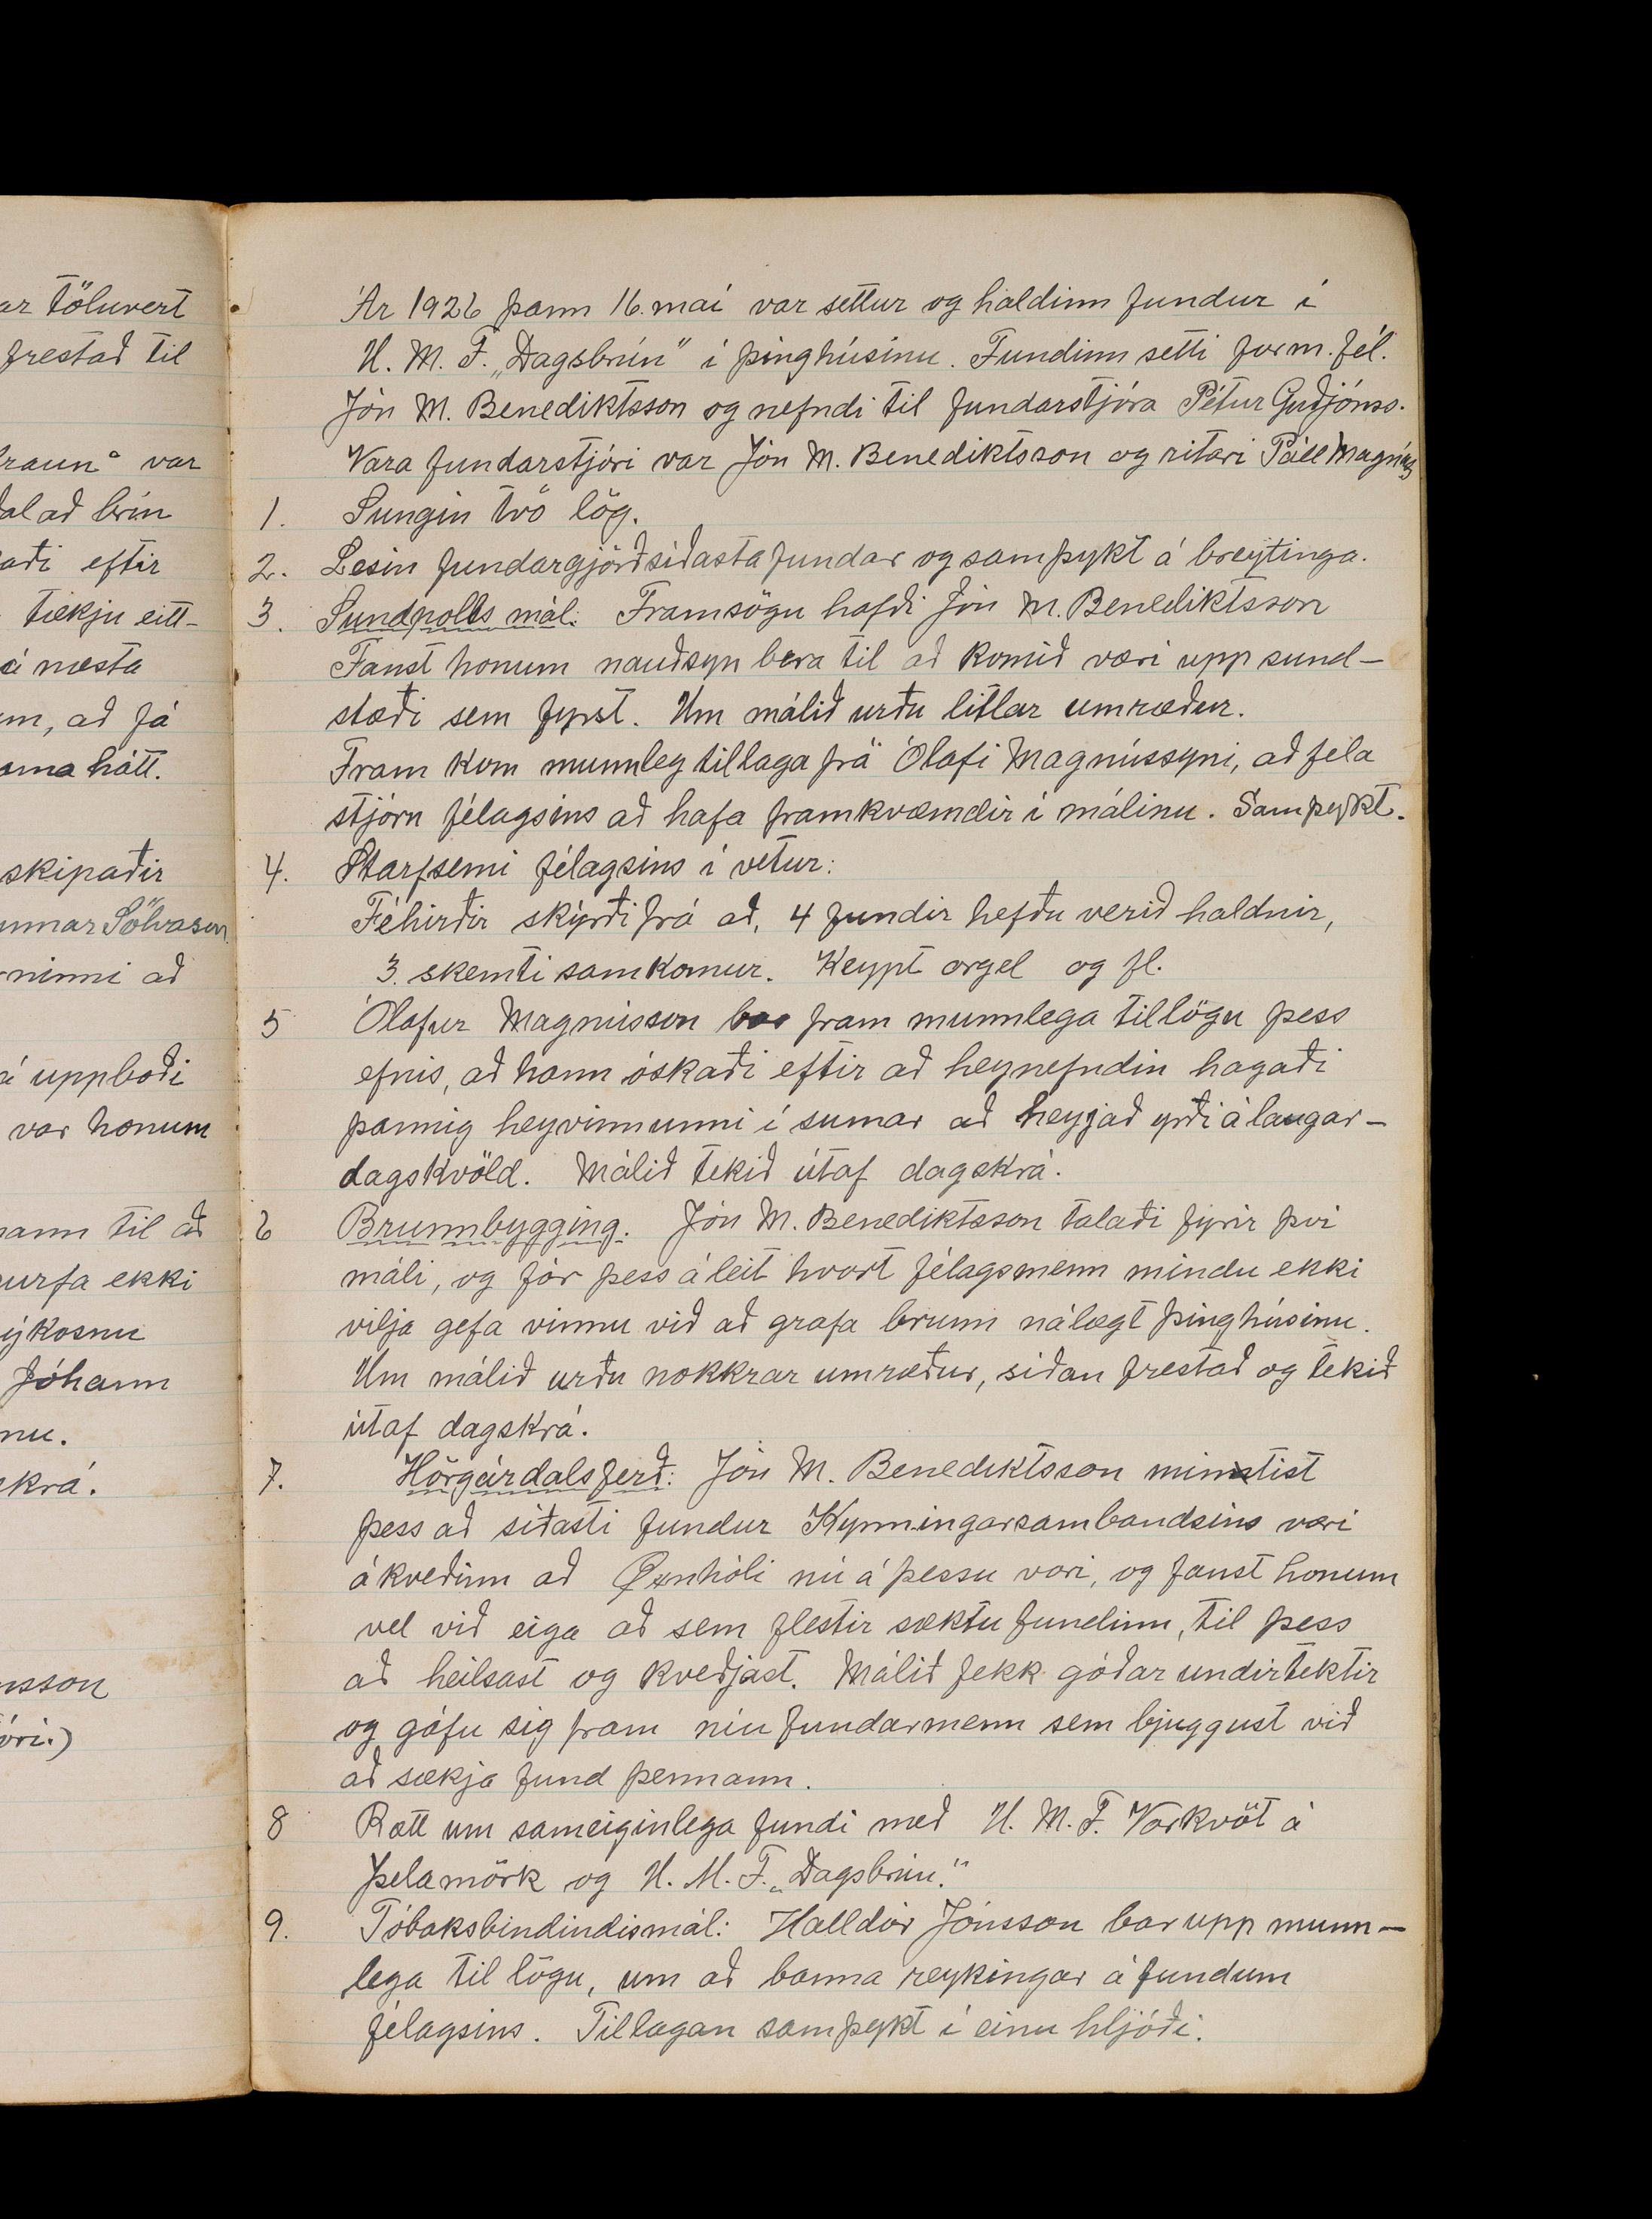 ar töluvert
frestað til
hraun" var
dal að brín
aði eftir
tækju eitt-
á næsta
um, að fá
sama hátt.
skipaðir
unnar Sölvason
ninni að
á uppboði
var honum
mann til að
þurfa ekki
nýkosnu
Jóhann
nu.
skrá.
nsson
óri.)
Ár 1926 þann 16. mai var settur og haldinn fundur í
U. M. F. „Dagsbrún" í þinghúsinu. Fundinn setti form. fél.
Jón M. Benediktsson og nefndi til fundarstjóra Pétur Guðjónss.
Vara fundarstjóri var Jón M. Benediktsson og ritari Páll Magnúss
1. Sungin tvö lög.
2. Lesin fundargjörð síðasta fundar og samþykt á breytinga.
3. Sundpolls mál: Framsögu hafði Jón M. Benediktsson
Fanst honum nauðsyn bera til að komið væri upp sund-
stæði sem fyrst. Um málið urðu litlar umræður.
Fram kom munnleg tillaga frá Ólafi Magnússyni, að fela
stjórn félagsins að hafa framkvæmdir í málinu. Samþykt.
4. Starfsemi félagsins í vetur:
Féhirðir skýrði frá að, 4 fundir hefðu verið haldnir,
3. skemtisamkomur. Keypt orgel og fl.
5 Ólafur Magnússon bar fram munnlega tillögu þess
efnis, að hann óskaði eftir að heynefndin hagaði
þannig heyvinnunni í sumar að heyjað yrði á laugar-
dagskvöld. Málið tekið útaf dagskrá.
6 Brunnbygging. Jón M. Benediktsson talaði fyrir því
máli, og fór þess á leit hvort félagsmenn mindu ekki
vilja gefa vinnu við að grafa brunn nálægt þinghúsinu.
Um málið urðu nokkrar umræður, síðan frestað og tekið
útaf dagskrá.
7. Hörgárdalsferð: Jón M. Benediktsson mintist
þess að síðasti fundur Kynningarsambandsins væri
ákveðinn að Öxnhóli nú á þessu vori, og fanst honum
vel við eiga að sem flestir sæktu fundinn, til þess
að heilsast og kveðjast. Málið fekk góðar undirtektir
og gáfu sig fram níu fundarmenn sem bjuggust við
að sækja fund þennann.
8 Rætt um sameiginlega fundi með U. M. F. Vorkvöt á
Þelamörk og U. M. F. „Dagsbrún."
9. Tóbaksbindindismál: Halldór Jónsson bar upp munn-
lega tillögu, um að banna reykingar á fundum
félagsins. Tillagan samþykt í einu hljóði.